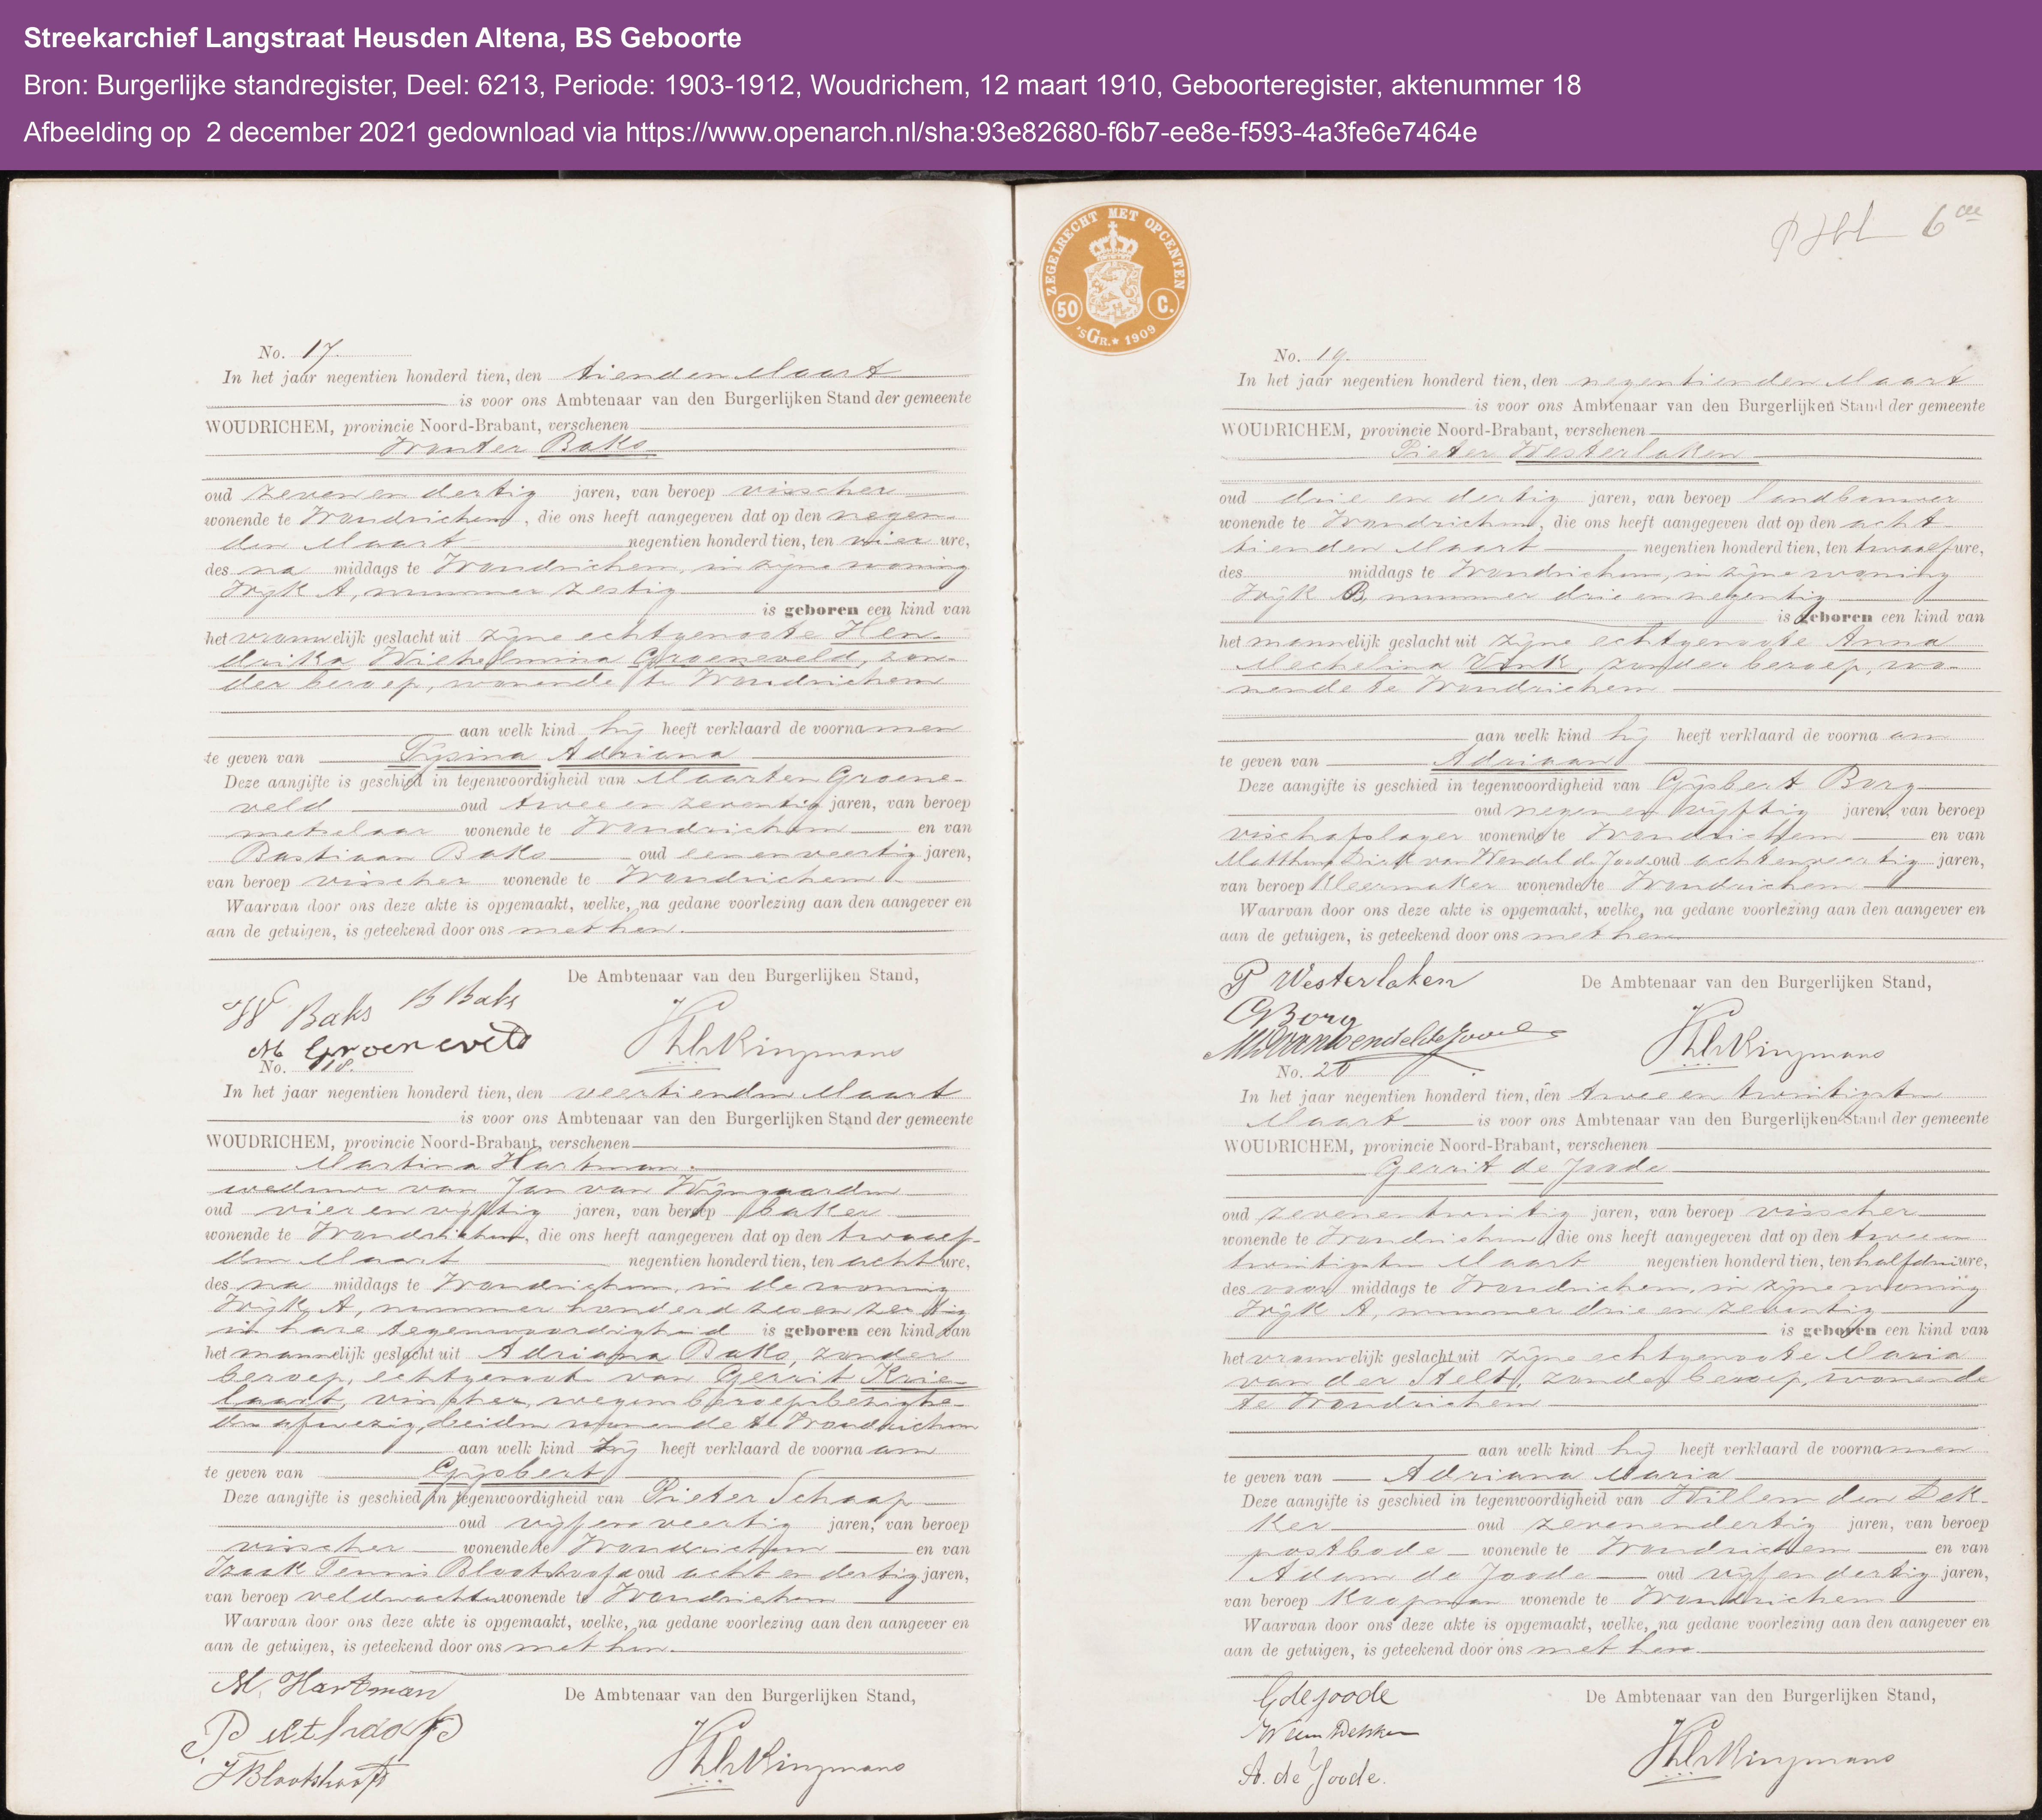 Streekarchief Langstraat Heusden Altena, BS Geboorte
Bron: Burgerlijke standregister, Deel: 6213, Periode: 1903-1912, Woudrichem, 12 maart 1910, Geboorteregister, aktenummer 18
Afbeelding op 2 december 2021 gedownload via https://www.openarch.nl/sha:93e82680-f6b7-ee8e-f593-4a3fe6e7464e
No. 17.
In het jaar negentien honderd tien, den tienden Maart
is voor ons Ambtenaar van den Burgerlijken Stand der gemeente
WOUDRICHEM, provincie Noord-Brabant, verschenen
Wouter Baks
oud zeven en dertig jaren, van beroep visscher
wonende te Woudrichem, die ons heeft aangegeven dat op den negen-
den Maart negentien honderd tien, ten vier ure,
des na middags te Woudrichem, in zijne woning
Wijk A, nummer zestig
is geboren een kind van
het vrouwelijk geslacht uit zijne echtgenoote Hen-
drika Wilhelmina Groeneveld, zon-
der beroep, wonende te Woudrichem
aan welk kind hij heeft verklaard de voornamen
te geven van Tijsina Adriana
Deze aangifte is geschied in tegenwoordigheid van Maarten Groene-
veld oud twee en zeventig jaren, van beroep
metselaar wonende te Woudrichem en van
Bastiaan Baks oud een en veertig jaren,
van beroep visscher wonende te Woudrichem
Waarvan door ons deze akte is opgemaakt, welke, na gedane voorlezing aan den aangever en
aan de getuigen, is geteekend door ons met hen.
De Ambtenaar van den Burgerlijken Stand,
W Baks B Baks
M Groeneveld
No. 18.
In het jaar negentien honderd tien, den veertienden Maart
is voor ons Ambtenaar van den Burgerlijken Stand der gemeente
WOUDRICHEM, provincie Noord-Brabant, verschenen
Martina Hartman
weduwe van Jan van Wijngaarden
oud vier en vijftig jaren, van beroep baker
wonende te Woudrichem, die ons heeft aangegeven dat op den twaalf-
den Maart negentien honderd tien, ten acht ure,
des na middags te Woudrichem, in de woning
Wijk A, nummer honderd zes en zestig
in hare tegenwoordigheid is geboren een kind van
het mannelijk geslacht uit Adriana Baks, zonder
beroep, echtgenoote van Gerrit Krie-
laart, visscher, wegens beroepsbezighe-
den afwezig, beiden wonende te Woudrichem
aan welk kind zij heeft verklaard de voornaam
te geven van Gijsbert
Deze aangifte is geschied in tegenwoordigheid van Pieter Schaap
oud vijf en veertig jaren, van beroep
visscher wonende te Woudrichem en van
Izaak Teunis Blootshoofd oud acht en dertig jaren,
van beroep veldwachter wonende te Woudrichem
Waarvan door ons deze akte is opgemaakt, welke, na gedane voorlezing aan den aangever en
aan de getuigen, is geteekend door ons met hen.
De Ambtenaar van den Burgerlijken Stand,
M. Hartman
ZEGELRECHT MET OPCENTEN
50 C.
'sGR.* 1909
6
No. 19.
In het jaar negentien honderd tien, den negentienden Maart
is voor ons Ambtenaar van den Burgerlijken Stand der gemeente
WOUDRICHEM, provincie Noord-Brabant, verschenen
Pieter Westerlaken
oud drie en dertig jaren, van beroep landbouwer
wonende te Woudrichem, die ons heeft aangegeven dat op den acht-
tienden Maart negentien honderd tien, ten twaalf ure,
des middags te Woudrichem, in zijne woning
Wijk B, nummer drie en negentig
is geboren een kind van
het mannelijk geslacht uit zijne echtgenoote Anna
Mechelina Vink, zonder beroep, wo-
nende te Woudrichem
aan welk kind hij heeft verklaard de voornaam
te geven van Adriaan
Deze aangifte is geschied in tegenwoordigheid van Gijsbert Borg
oud negen en vijftig jaren, van beroep
vischafslager wonende te Woudrichem en van
Dirk van Wendel de Joode oud acht en veertig jaren,
van beroep kleermaker wonende te Woudrichem
Waarvan door ons deze akte is opgemaakt, welke, na gedane voorlezing aan den aangever en
aan de getuigen, is geteekend door ons met hen
De Ambtenaar van den Burgerlijken Stand,
P Westerlaken
G Borg
No. 20
In het jaar negentien honderd tien, den twee en twintigsten
Maart is voor ons Ambtenaar van den Burgerlijken Stand der gemeente
WOUDRICHEM, provincie Noord-Brabant, verschenen
Gerrit de Joode
oud zeven en twintig jaren, van beroep visscher
wonende te Woudrichem die ons heeft aangegeven dat op den twee en
twintigsten Maart negentien honderd tien, ten half drie ure,
des voor middags te Woudrichem, in zijne woning
Wijk A, nummer drie en zeventig
is geboren een kind van
het vrouwelijk geslacht uit zijne echtgenoote Maria
van der Stelt, zonder beroep, wonende
te Woudrichem
aan welk kind hij heeft verklaard de voornamen
te geven van Adriana Maria
Deze aangifte is geschied in tegenwoordigheid van Willem den Dek-
ker oud zeven en dertig jaren, van beroep
postbode wonende te Woudrichem en van
Adam de Joode oud vijf en dertig jaren,
van beroep Koopman wonende te Woudrichem
Waarvan door ons deze akte is opgemaakt, welke, na gedane voorlezing aan den aangever en
aan de getuigen, is geteekend door ons met hen
De Ambtenaar van den Burgerlijken Stand,
G de Joode
W den Dekker
A. de Joode.